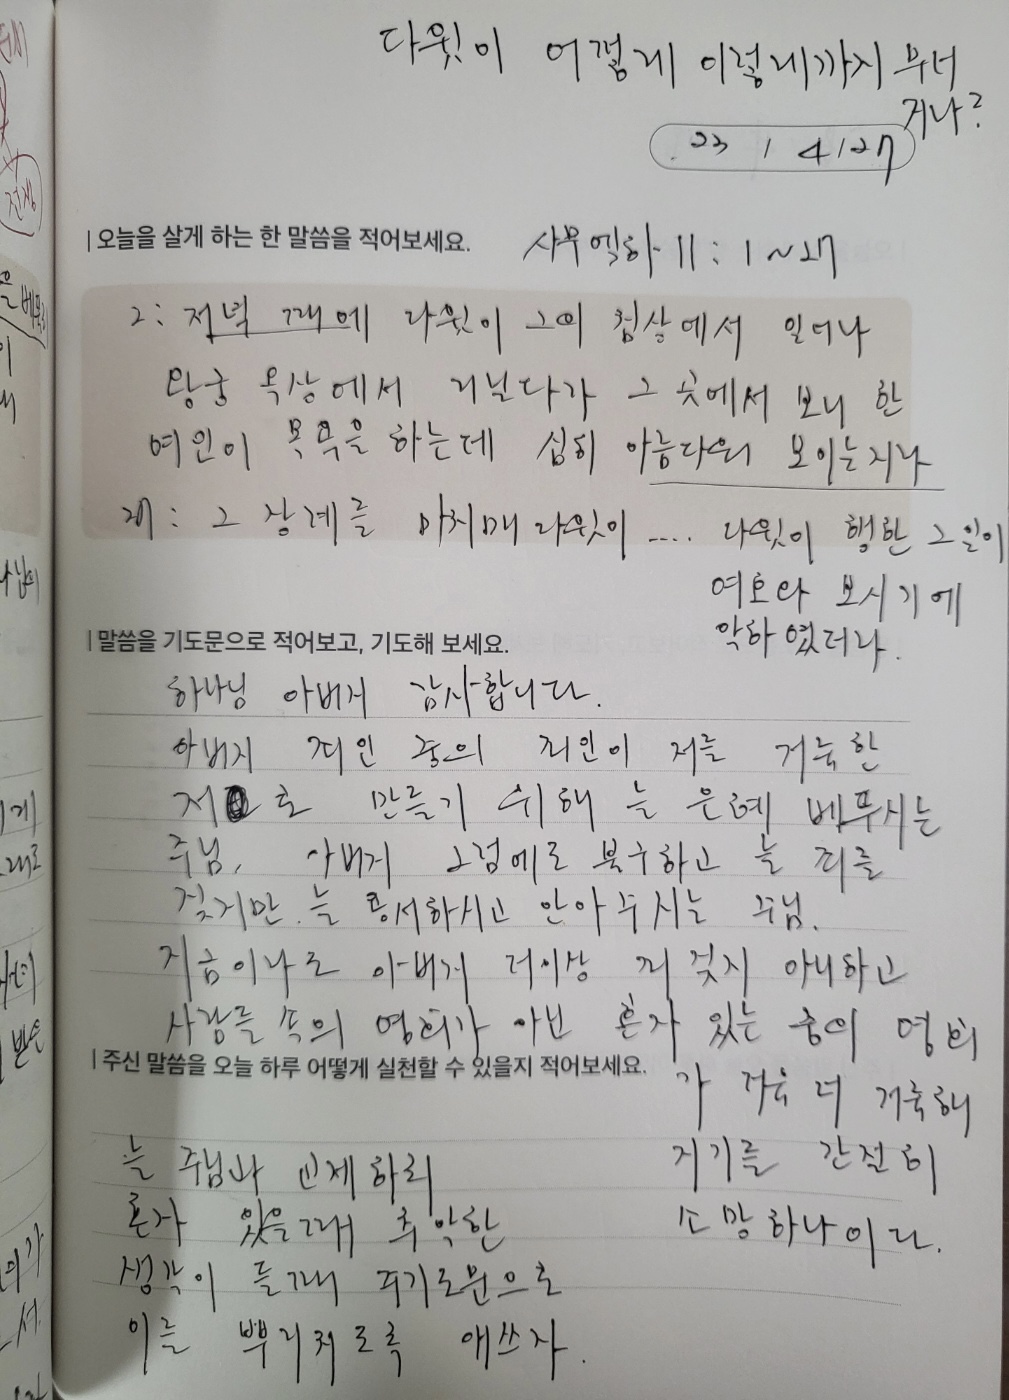 다윗이 어떻게 이렇게까지 무너
지나?
23 / 4 / 27
오늘을 살게 하는 한 말씀을 적어보세요.
사무엘하 11 : 1 ~ 27
2 : 저녁 때에 다윗이 그의 침상에서 일어나
왕궁 옥상에서 거닐다가 그 곳에서 보니 한
여인이 목욕을 하는데 심히 아름다워 보이는지라
그 장례를 마치매 다윗이 .... 다윗이 행한 그 일이
여호와 보시기에
악하였더라.
말씀을 기도문으로 적어보고, 기도해 보세요.
하나님 아버지 감사합니다.
아버지 죄인 중의 죄인이 저를 거룩한
로 만들기 위해 늘 은혜 베푸시는
주님, 아버지 그럼에도 불구하고 늘 죄를
짓지만 늘 용서하시고 안아주시는 주님.
지금이나로 아버지 더이상 죄 짓지 아니하고
사람들 속의 영희가 아닌 혼자 있는 중의 영희
가 더 거룩해
지기를 간절히
소망하나이다.
주신 말씀을 오늘 하루 어떻게 실천할 수 있을지 적어보세요.
늘 주님과 교제하리
혼자 있을때 취약한
생각이 들때 주기도문으로
이를 뿌리치도록 애쓰자.